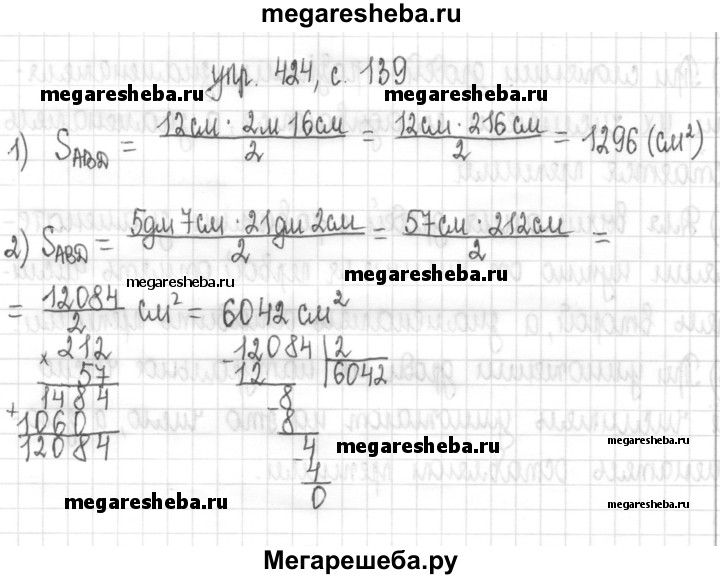 megaresheba.ru
упр. 424, с. 139
megaresheba.ru megaresheba.ru
1) S_ABD = 12см · 2м 16см / 2 = 12см · 216 см / 2 = 1296 (см²)
2) S_ABD = 5дм 7см · 21дм 2см / 2 = 57см · 212см / 2 =
megaresheba.ru
= 12084 / 2 см² = 6042 см²
× 212
57
1484
+ 1060
12084
- 12084 | 2
12 6042
- 8
8
- 4
4
0
megaresheba.ru megaresheba.ru
megaresheba.ru megaresheba.ru
Мегарешеба.ру